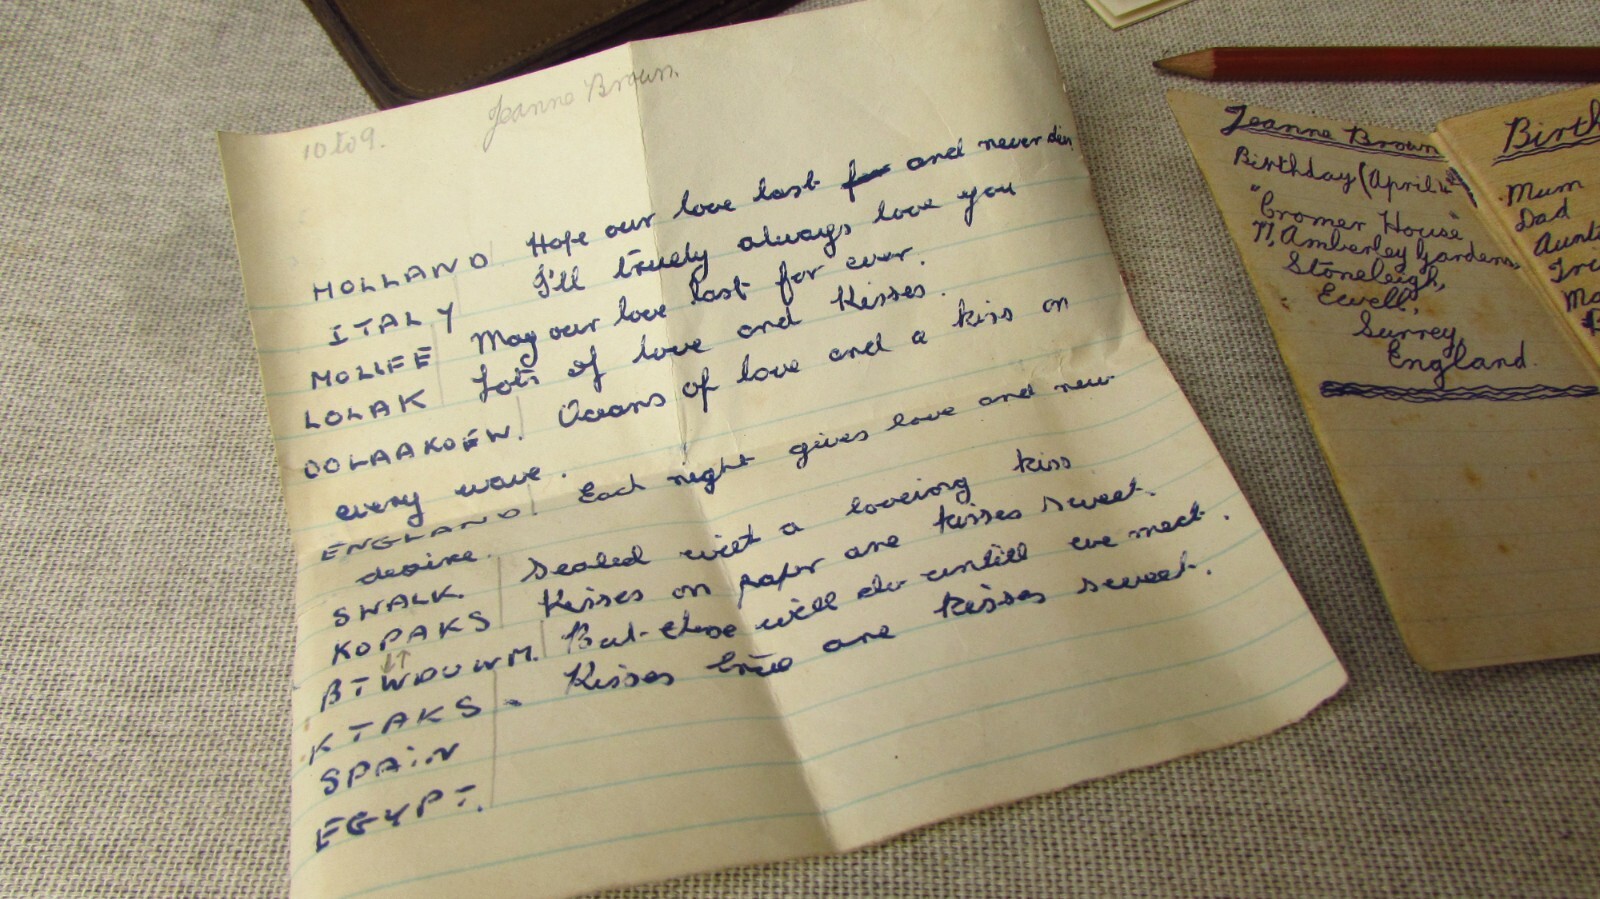 10 to 9.
Jeanne Brown.
HOLLAND Hope our love last and never dies
ITALY I'll truely always love you
MOLLFE May our love last for ever.
LOLAK Lots of love and Kisses.
OOLAAKOEW. Oceans of love and a kiss on
every wave.
ENGLAND Each night gives love and new
desire.
SWALK. Sealed witt a loveing kiss
KOPAKS Kisses on paper are kisses sweet.
BTWDUWM. But these will do untill we meet.
KTAKS. Kisses true are kisses sweet.
SPAiN
EGYPT.
Jeanne Brown
Birthday (April
"Cromer House"
71, Amberley Gardens,
Stoneleigh,
Ewell,
Surrey,
England.
Mum
Dad